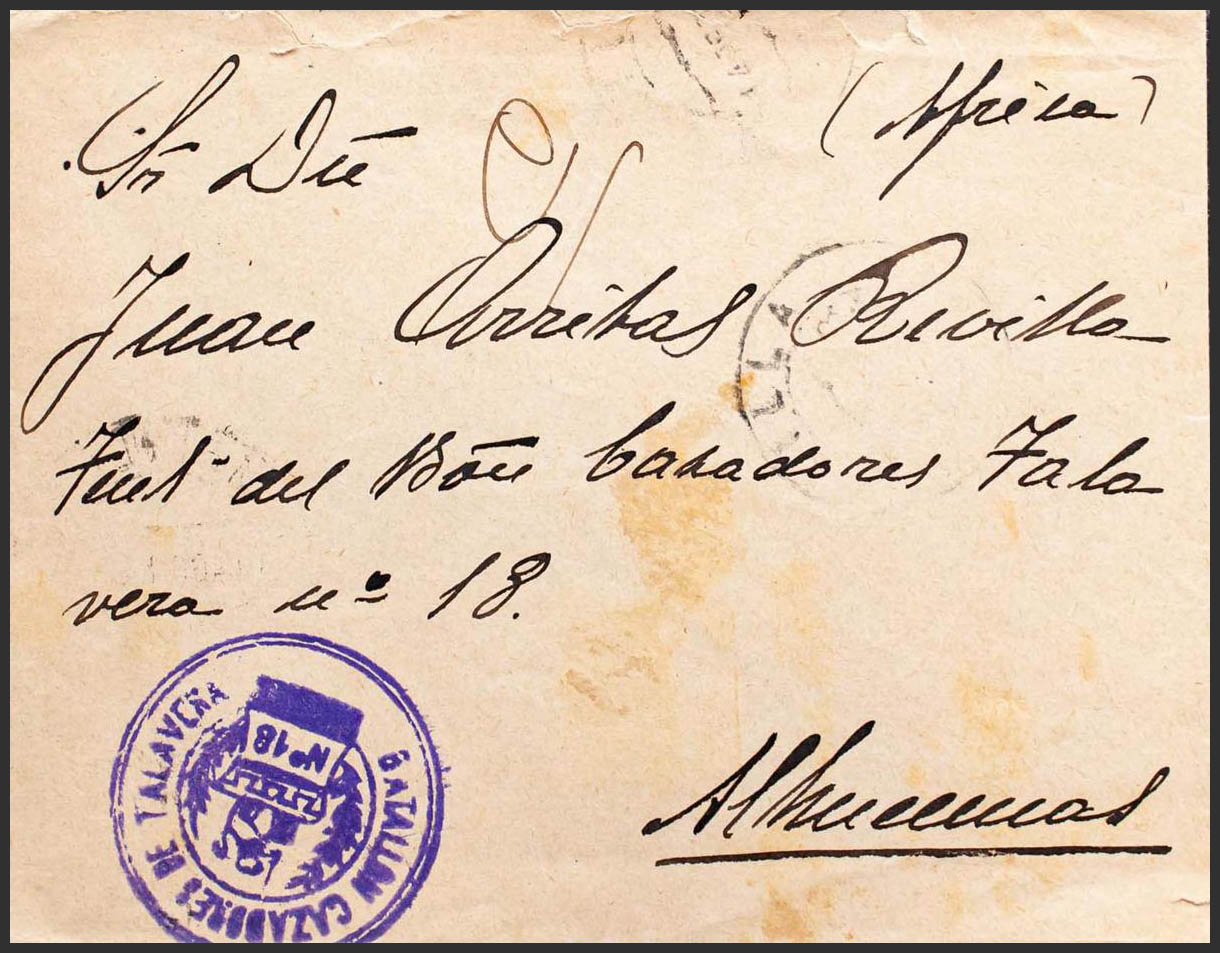 (Africa)
Sr Dn
Juan Arribas Revilla
del Bón Cazadores Tala
vera nº 18.
Alhucemas
BATALLON CAZADORES DE TALAVERA
Nº 18
LLA